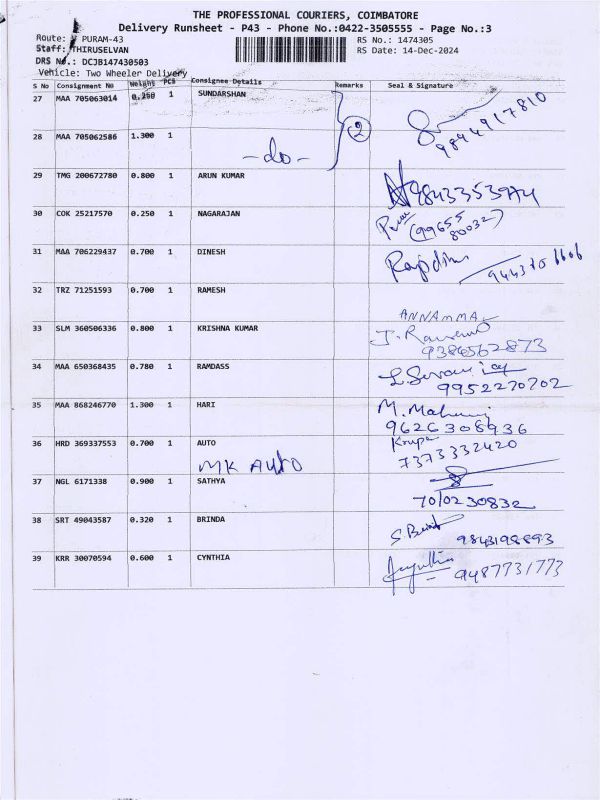 THE PROFESSIONAL COURIERS, COIMBATORE
Delivery Runsheet - P43 - Phone No.:0422-3505555 - Page No.:3
Route: PURAM-43 RS No.: 1474305
Staff: THIRUSELVAN RS Date: 14-Dec-2024
DRS No.: DCJB147430503
Vehicle: Two Wheeler Delivery
S No Consignment No Weight PCS Consignee Details Remarks Seal & Signature
27 MAA 705063014 0.250 1 SUNDARSHAN 9894917810
28 MAA 705062586 1.300 1 -do- 2
29 TMG 200672780 0.800 1 ARUN KUMAR 9843353974
30 COK 25217570 0.250 1 NAGARAJAN (99655 80032)
31 MAA 706229437 0.700 1 DINESH
32 TRZ 71251593 0.700 1 RAMESH ANNAMMA
33 SLM 360506336 0.800 1 KRISHNA KUMAR 9384562873
34 MAA 650368435 0.780 1 RAMDASS 9952270702
35 MAA 868246770 1.300 1 HARI 9626308936
36 HRD 369337553 0.700 1 AUTO 7373332420
MK AUTO
37 NGL 6171338 0.900 1 SATHYA 7010230832
38 SRT 49043587 0.320 1 BRINDA 9843198893
39 KRR 30070594 0.600 1 CYNTHIA 9487731773